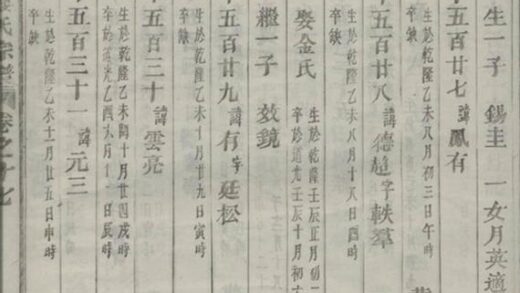 生一子 錫圭 一女月英適
五百廿七 諱鳳有
生於乾隆乙未八月初三日午時
卒缺
五百廿八 諱德趕字軼羣
生於乾隆乙未八月十七日酉時
卒缺
娶金氏
生於乾隆壬辰正月初二
卒於道光壬辰十月初六
繼一子 效鏡
五百廿九 諱有字廷松
生於乾隆乙未十月廿九日寅時
卒缺
五百三十 諱雲亮
生於乾隆乙未閏十月廿四戌時
卒於道光乙酉六月十一日辰時
五百三十一 諱元三
生於乾隆乙未十一月廿五日申時
卒缺
氏宗譜 卷之十七